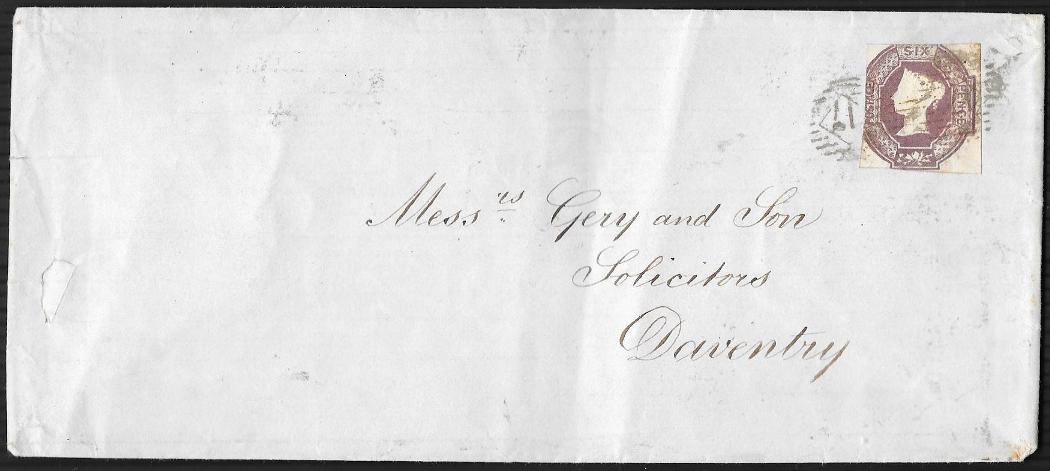 SIX
POSTAGE
PENCE
Mess.rs Gery and Son
Solicitors
Daventry